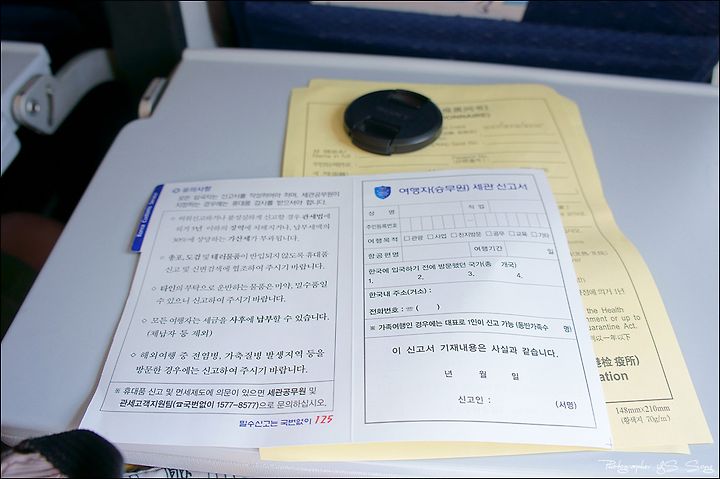 유의사항
모든 입국자는 신고서를 작성하여야 하며, 세관공무원이
지정하는 경우에는 휴대품 검사를 받으셔야 합니다.
◇ 허위신고하거나 불성실하게 신고할 경우 관세법에
의거 5년 이하의 징역에 처해지거나, 납부세액의
30%에 상당하는 가산세가 부과됩니다.
◇ 총포, 도검 및 테러물품이 반입되지 않도록 휴대품
신고 및 신변검색에 협조하여 주시기 바랍니다.
◇ 타인의 부탁으로 운반하는 물품은 마약, 밀수품일
수 있으니 신고하여 주시기 바랍니다.
◇ 모든 여행자는 세금을 사후에 납부할 수 있습니다.
(체납자 등 제외)
◇ 해외여행 중 전염병, 가축질병 발생지역 등을
방문한 경우에는 신고하여 주시기 바랍니다.
※ 휴대품 신고 및 면세제도에 의문이 있으면 세관공무원 및
관세고객지원팀(☎국번없이 1577-8577)으로 문의하십시오.
밀수신고는 국번없이 125
Korea Customs Service
여행자(승무원) 세관 신고서
성 명 직 업
주민등록번호
여행목적 □ 관광 □ 사업 □ 친지방문 □ 공무 □ 교육 □ 기타
항공편명 여행기간 일
한국에 입국하기 전에 방문했던 국가(총 개국)
1. 2. 3. 4.
한국내 주소(거소) :
전화번호 : ☏ ( )
※ 가족여행인 경우에는 대표로 1인이 신고 가능 (동반가족수 명)
이 신고서 기재내용은 사실과 같습니다.
년 월 일
신고인 : (서명)
Name in full
the Health
ornment or up to
arantine Act.
检疫所)
ation
148mm×210mm
(황색지 70g/㎡)
SONY
Photographer by S. Song